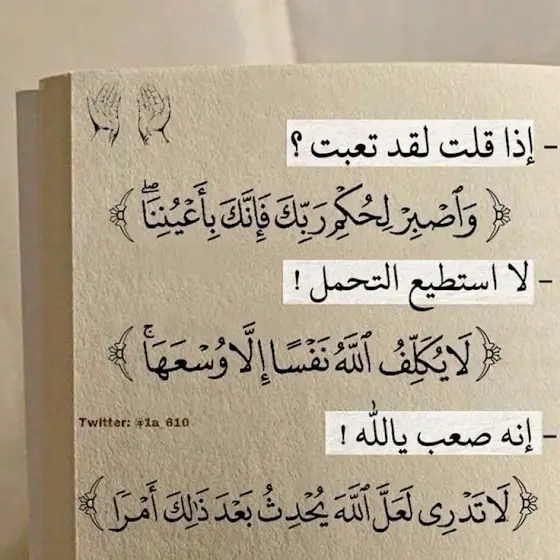 - إذا قلت لقد تعبت ؟
﴿ وَٱصۡبِرۡ لِحُكۡمِ رَبِّكَ فَإِنَّكَ بِأَعۡيُنِنَاۖ ﴾
- لا استطيع التحمل !
﴿ لَا يُكَلِّفُ ٱللَّهُ نَفۡسًا إِلَّا وُسۡعَهَاۚ ﴾
Twitter: @1a_610
- إنه صعب ياالله !
﴿ لَا تَدۡرِى لَعَلَّ ٱللَّهَ يُحۡدِثُ بَعۡدَ ذَٰلِكَ أَمۡرًا ﴾